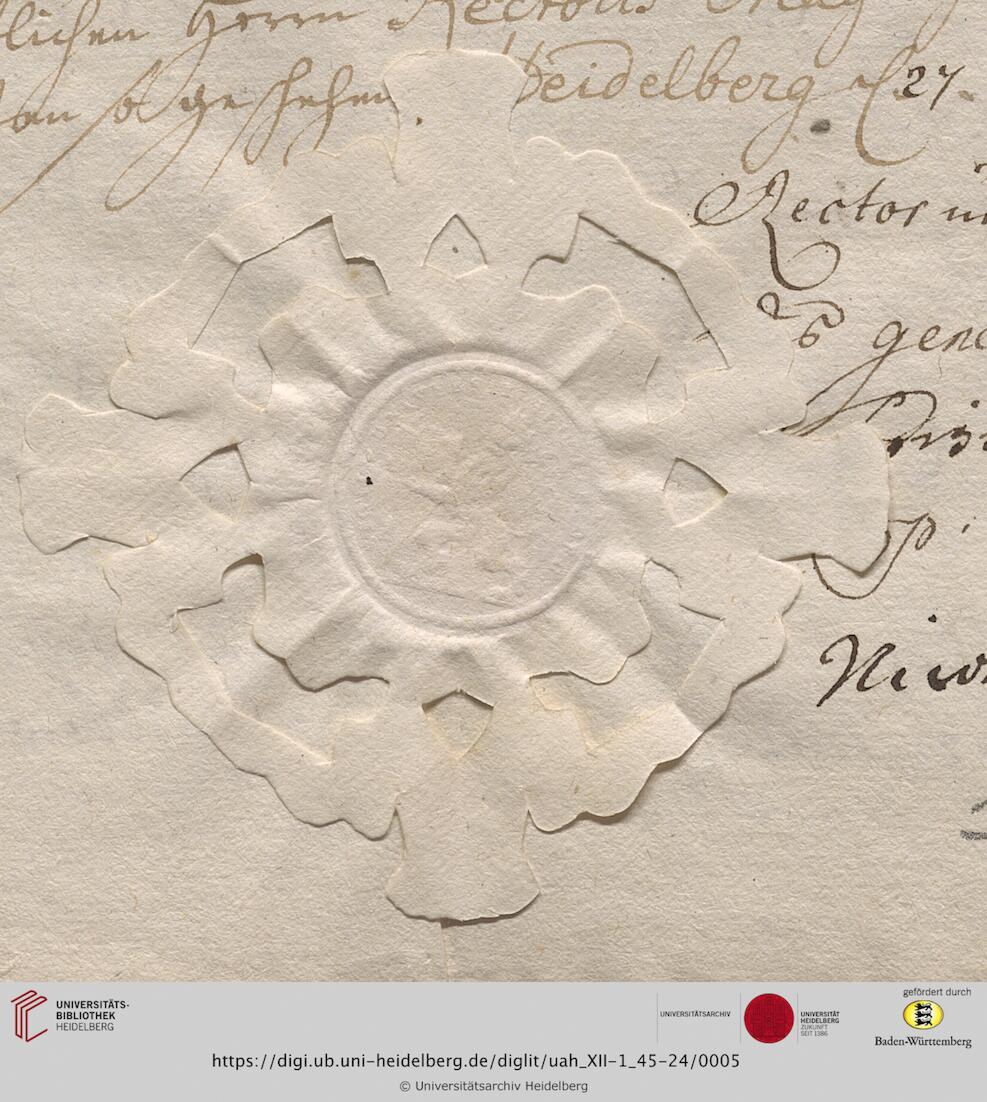 lichen Herrn Rectoris Mag
an so geschehen Heidelberg 27.
Rector u
gene
P.
Nico
UNIVERSITÄTS-
BIBLIOTHEK
HEIDELBERG
UNIVERSITÄTSARCHIV
UNIVERSITÄT
HEIDELBERG
ZUKUNFT
SEIT 1386
gefördert durch
Baden-Württemberg
https://digi.ub.uni-heidelberg.de/diglit/uah_XII-1_45-24/0005
© Universitätsarchiv Heidelberg